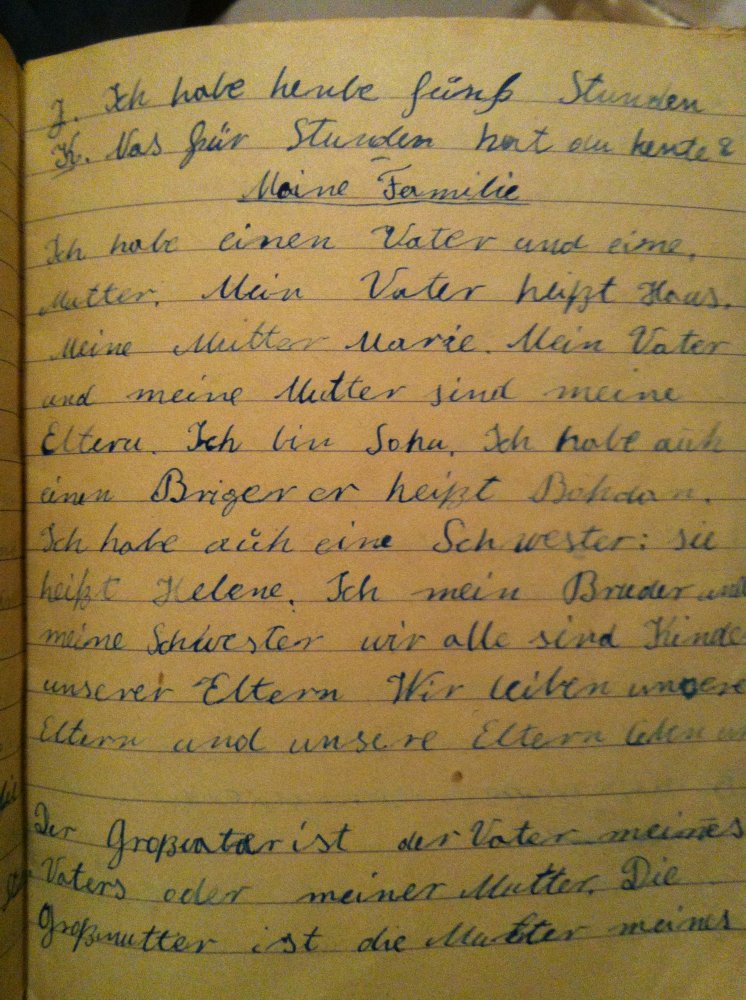 J. Ich habe heube fünf Stunden
K. Was für Stunden hat du heute?
Meine Familie
Ich habe einen Vater und eine,
Mutter. Mein Vater heißt Haus.
Meine Mutter Marie. Mein Vater
und meine Mutter sind meine
Eltern. Ich bin Sohn. Ich habe auch
einen Briger er heißt Bohdan.
Ich habe auch eine Schwester: sie
heißt Helene. Ich mein Bruder und
meine Schwester wir alle sind Kinde
unserer Eltern Wir leiben unsere
Eltern und unsere Eltern leben un
Der Großvater ist der Vater meines
Vaters oder meiner Mutter. Die
Großmutter ist die Mutter meines